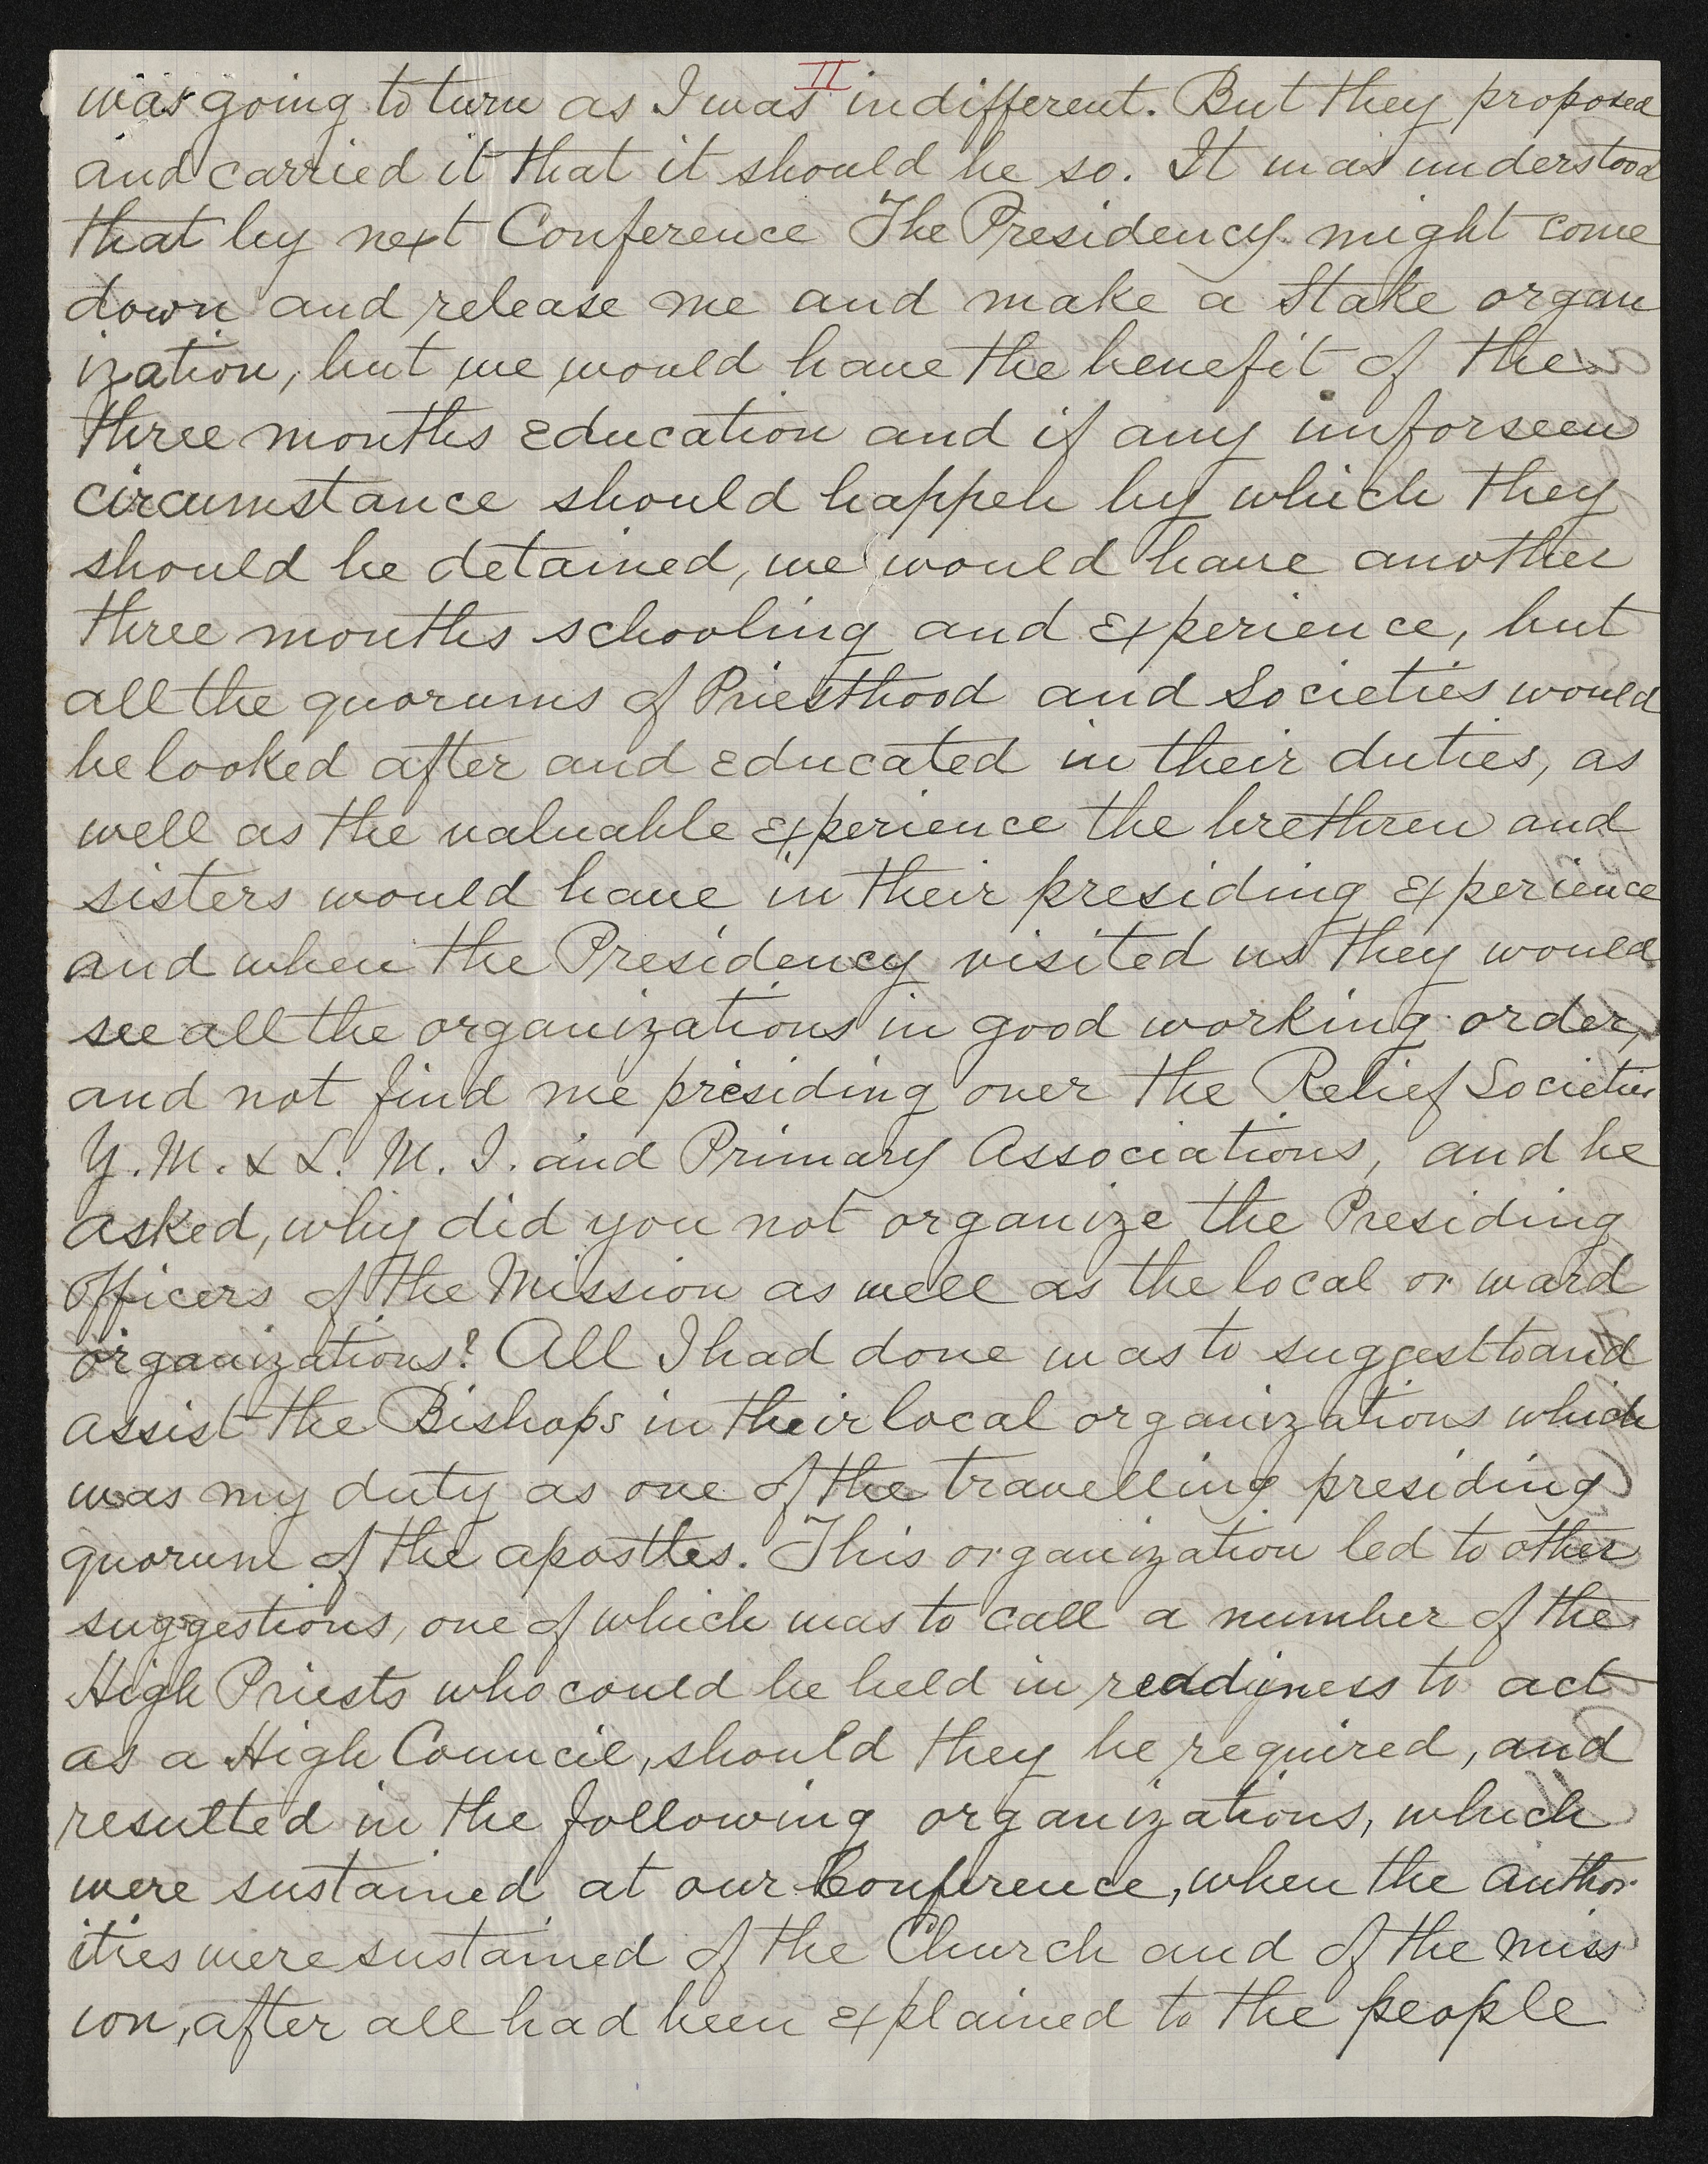 II
was going to turn as I was indifferent. But they proposed
and carried it that it should be so. It was understood
that by next Conference The Presidency might come
down and release me and make a Stake organ
ization, but we would have the benefit of the
three months education and if any unforseen
circumstance should happen by which they
should be detained, we would have another
three months schooling and experience, but
all the quorums of Priesthood and Societies would
be looked after and educated in their duties, as
well as the valuable experience the brethren and
sisters would have in their presiding experience
and when the Presidency visited us they would
see all the organizations in good working order,
and not find me presiding over the Relief Societies
Y. M. & L. M. I. and Primary Associations, and he
asked, why did you not organize the Presiding
Officers of the Mission as well as the local or ward
organizations? All I had done was to suggest to and
assist the Bishops in their local organizations which
was my duty as one of the travelling presiding
quorum of the apostles. This organization led to other
suggestions, one of which was to call a number of the
High Priests who could be held in readdiness to act
as a High Council, should they be required, and
resulted in the following organizations, which
were sustained at our Conference, when the author-
ities were sustained of the Church and of the miss
ion, after all had been explained to the people